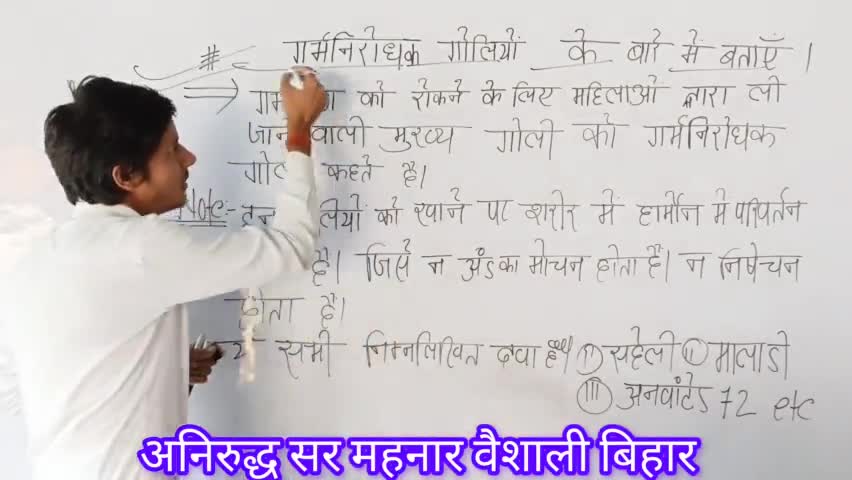 # गर्मनिरोधक गोलियों के बारे में बताएँ ।
⇒ को रोकने के लिए महिलाओं द्वारा ली
वाली मुख्य गोली को गर्मनिरोधक
कहते है।
Note:- को खाने पर शरीर में हार्मोन में परिवर्तन
है। जिसे न अंडका मोचन होता है। न निषेचन
होता है।
सभी निम्नलिखित दवा है (i) सहेली (ii) मालाडी
(iii) अनवांटेड 72 etc
अनिरुद्ध सर महनार वैशाली बिहार